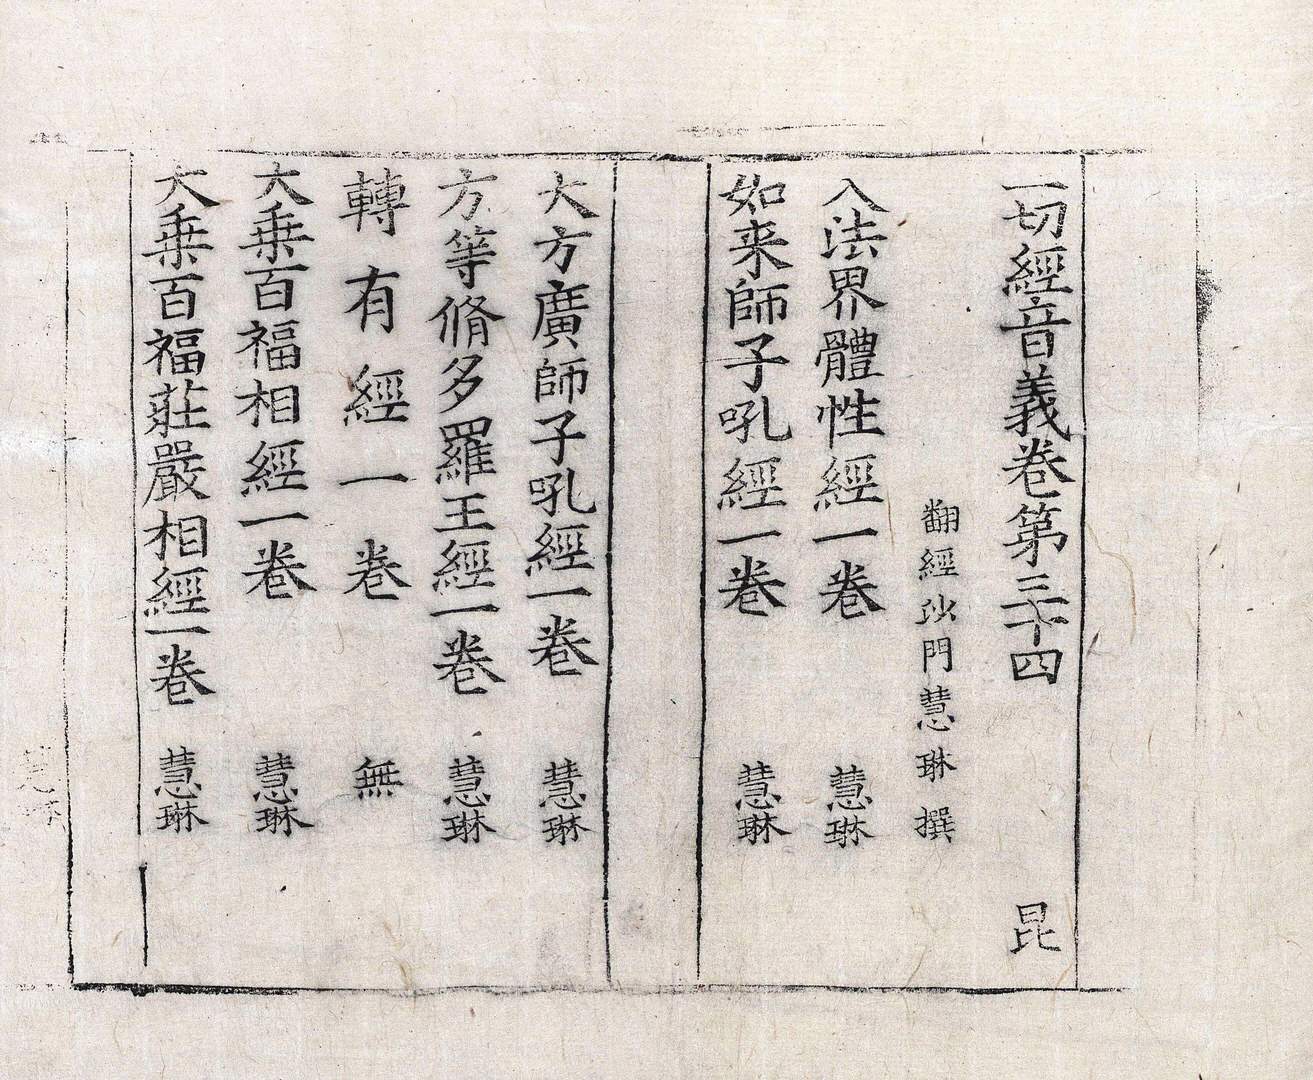 一切經音義卷第三十四 昆
翻經沙門慧琳撰
入法界體性經一卷 慧琳
如来師子吼經一卷 慧琳
大方廣師子吼經一卷 慧琳
方等脩多羅王經一卷 慧琳
轉有經一卷 無
大乗百福相經一卷 慧琳
大乗百福莊嚴相經一卷 慧琳